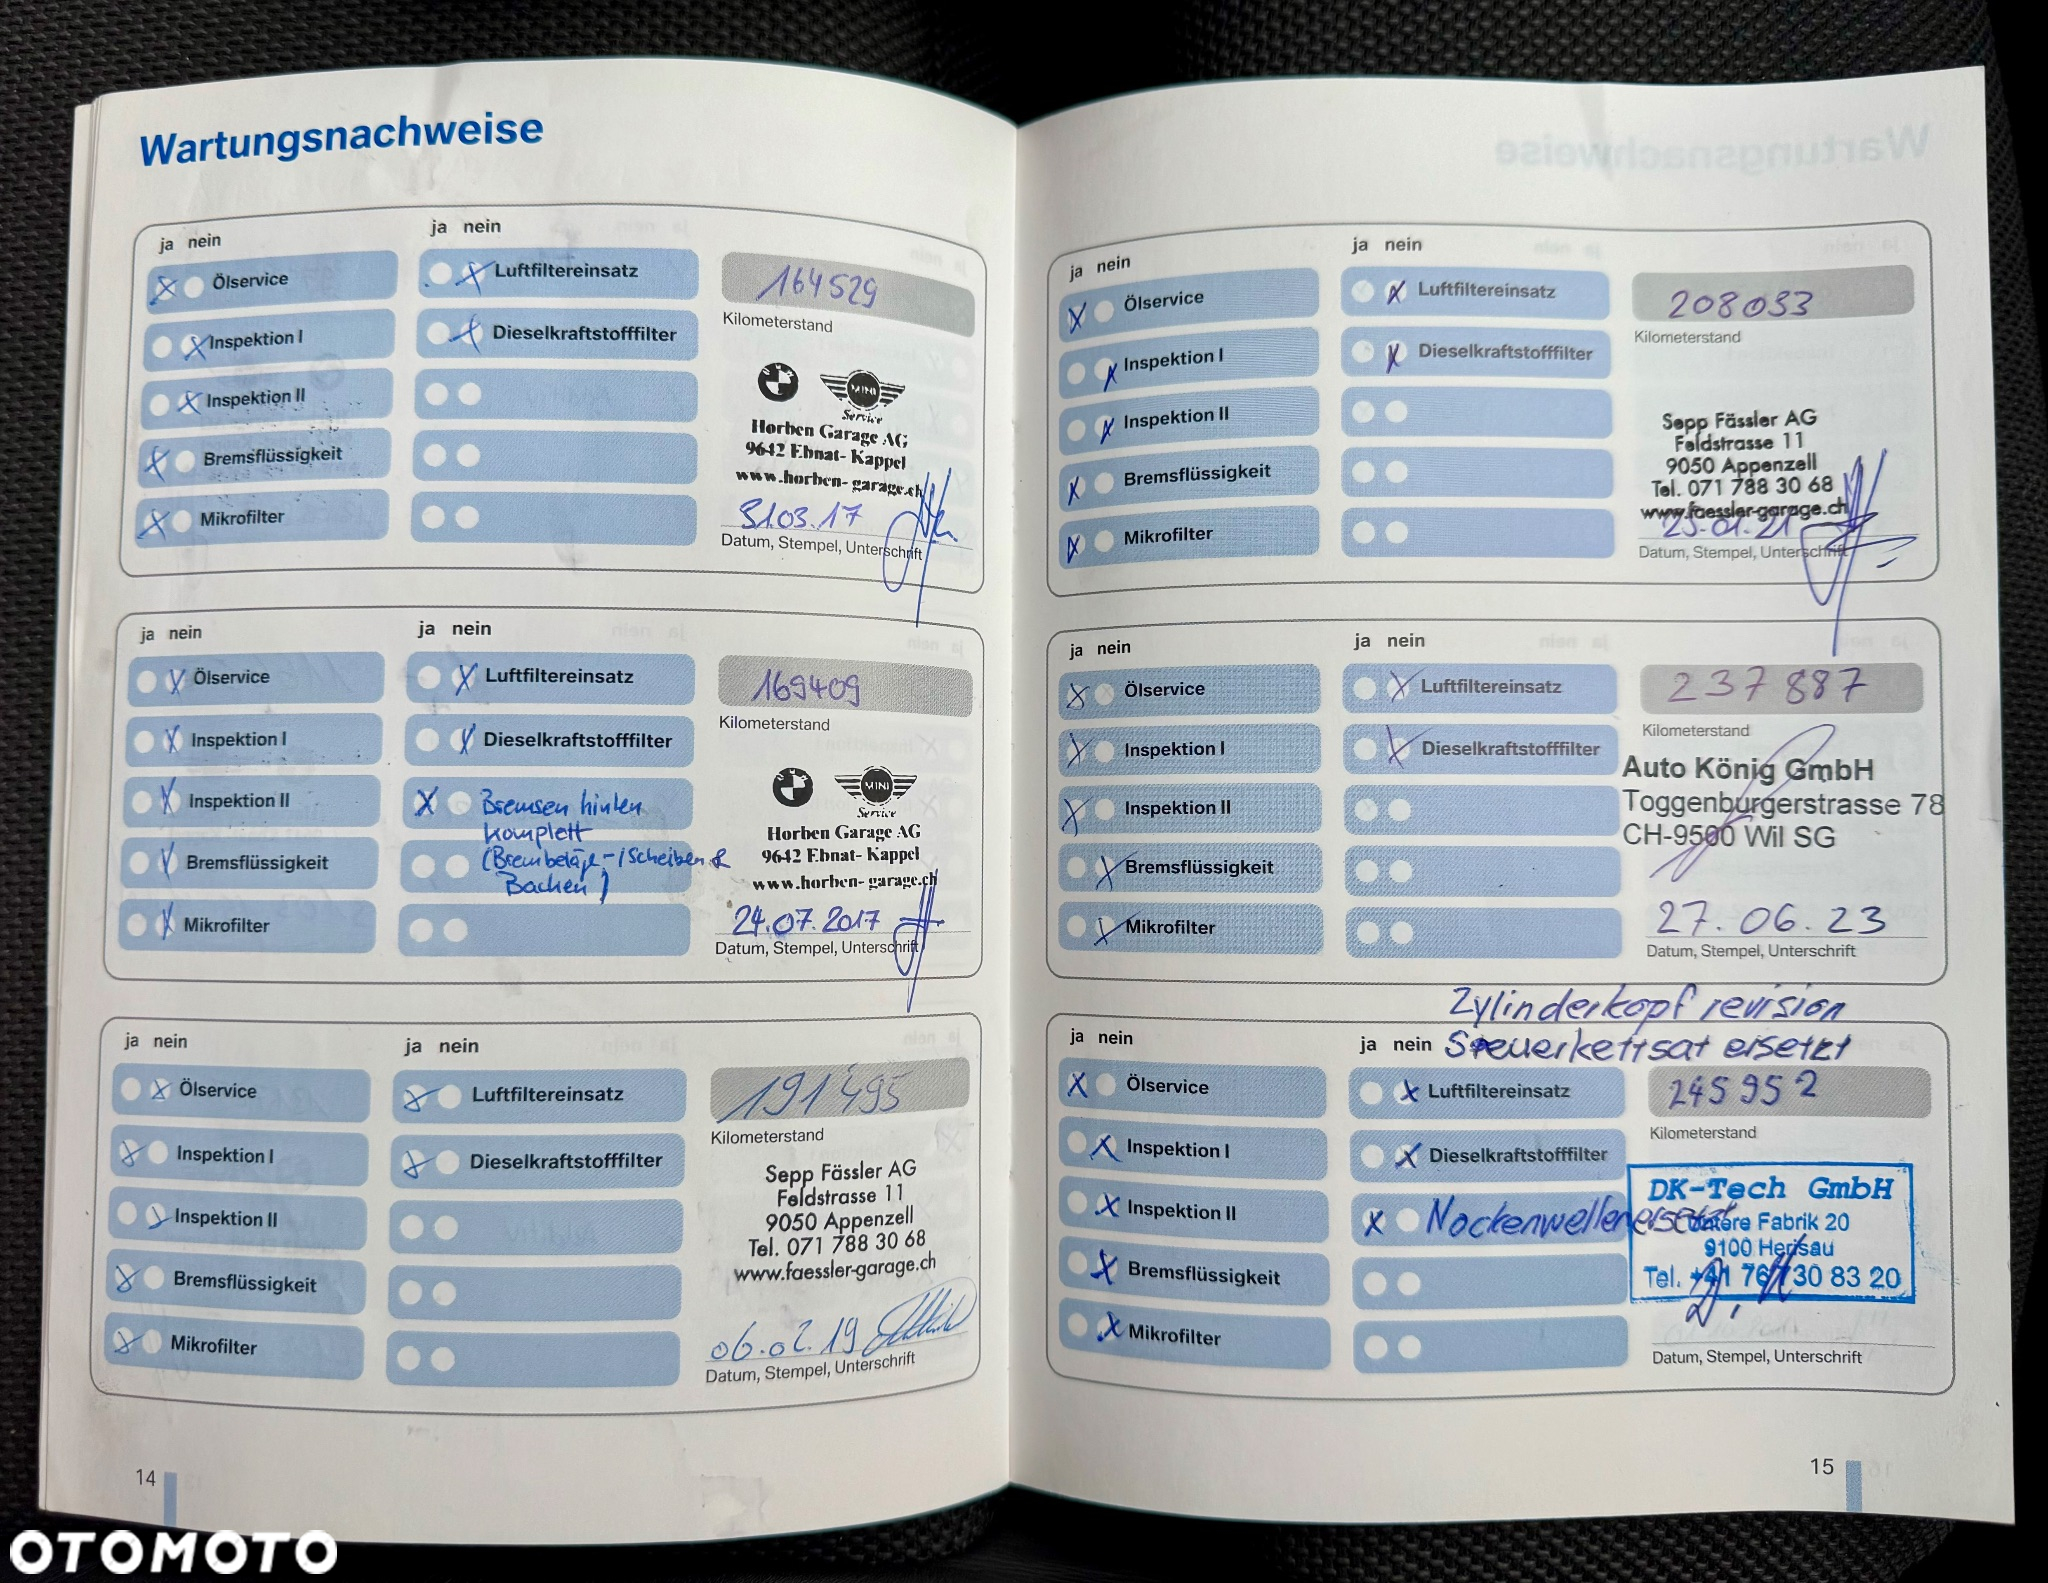 Wartungsnachweise
ja nein
ja nein
Ölservice
Luftfiltereinsatz
164529
Inspektion I
Dieselkraftstofffilter
Kilometerstand
Inspektion II
MINI
Service
Bremsflüssigkeit
Horben Garage AG
9642 Ebnat-Kappel
www.horben-garage.ch
Mikrofilter
31.03.17
Datum, Stempel, Unterschrift
ja nein
ja nein
Ölservice
Luftfiltereinsatz
169409
Inspektion I
Dieselkraftstofffilter
Kilometerstand
Inspektion II
Bremsen hinten
komplett
(Brembeläge-/Scheiben &
Backen)
MINI
Service
Bremsflüssigkeit
Horben Garage AG
9642 Ebnat-Kappel
www.horben-garage.ch
Mikrofilter
24.07.2017
Datum, Stempel, Unterschrift
ja nein
ja nein
Ölservice
Luftfiltereinsatz
191'495
Inspektion I
Dieselkraftstofffilter
Kilometerstand
Inspektion II
Sepp Fässler AG
Feldstrasse 11
9050 Appenzell
Tel. 071 788 30 68
www.faessler-garage.ch
Bremsflüssigkeit
Mikrofilter
06.02.19
Datum, Stempel, Unterschrift
14
ja nein
ja nein
Ölservice
Luftfiltereinsatz
208033
Inspektion I
Dieselkraftstofffilter
Kilometerstand
Inspektion II
Sepp Fässler AG
Feldstrasse 11
9050 Appenzell
Tel. 071 788 30 68
www.faessler-garage.ch
Bremsflüssigkeit
Mikrofilter
25.01.21
Datum, Stempel, Unterschrift
ja nein
ja nein
Ölservice
Luftfiltereinsatz
237887
Inspektion I
Dieselkraftstofffilter
Kilometerstand
Auto König GmbH
Toggenburgerstrasse 78
CH-9500 Wil SG
Inspektion II
Bremsflüssigkeit
Mikrofilter
27.06.23
Datum, Stempel, Unterschrift
Zylinderkopf revision
Steuerkettsat ersetzt
ja nein
ja nein
Ölservice
Luftfiltereinsatz
245952
Inspektion I
Dieselkraftstofffilter
Kilometerstand
Inspektion II
Nockenwellen ersetzt
DK-Tech GmbH
Untere Fabrik 20
9100 Herisau
Tel. +41 76 730 83 20
Bremsflüssigkeit
Mikrofilter
Datum, Stempel, Unterschrift
15
OTOMOTO